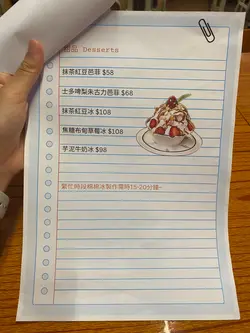 甜品 Desserts
抹茶紅豆芭菲 $58
士多啤梨朱古力芭菲 $68
抹茶紅豆冰 $108
焦糖布甸草莓冰 $108
芋泥牛奶冰 $98
繁忙時段棉棉冰製作需時15-20分鐘~